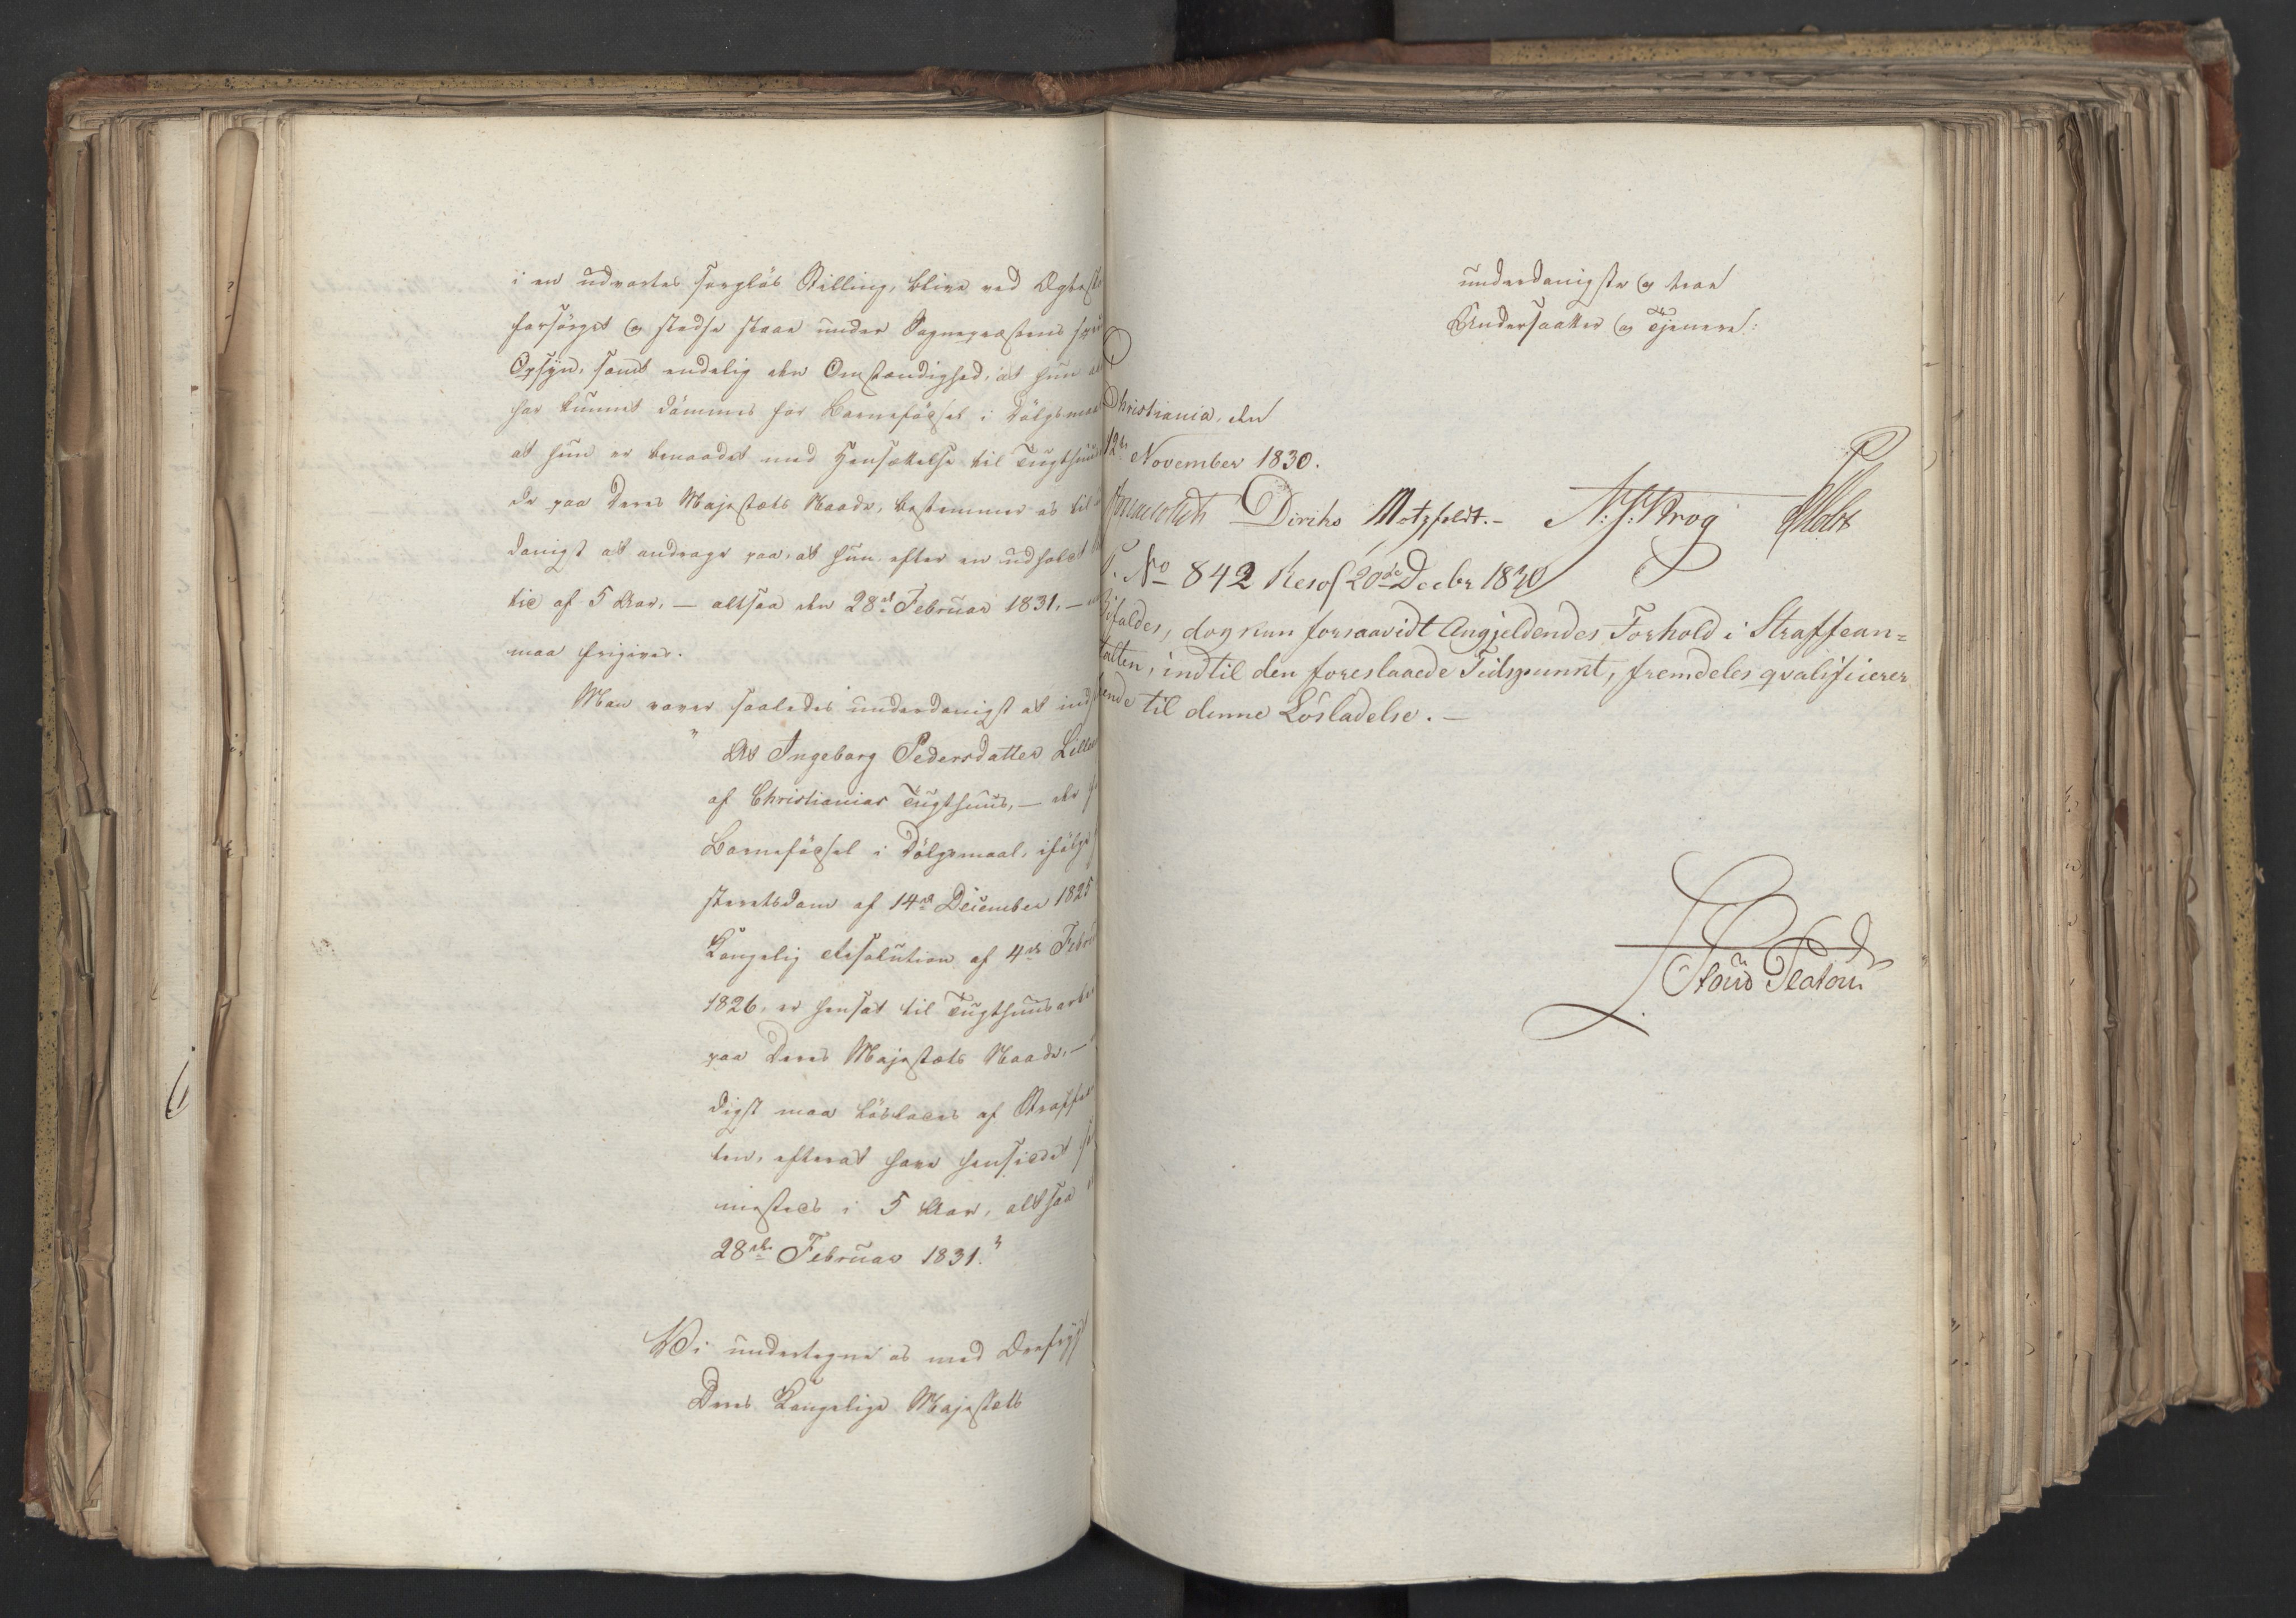 i en udvortes sorgløs Stilling, blive ved Ægtefolk
forsørget og stedse staae under Sognepræstens
Opsyn, samt endelig den Omstændighed, at hun
har kunnet dømmes for Barnefødsel i Dølgsmaal
at hun er benaadet med Hensættelse til Tugthuus
de paa Deres Majestæts Naade, bestemmer os til
danigst at andrage paa, at hun efter en udholdt
tid af 5 Aar, — altsaa den 28de Februar 1831, —
maa frigives.
Man vover saaledes underdanigst at ind
" At Ingeborg Pedersdatter
af Christianias Tugthuus, — der
Barnefødsel i Dølgsmaal, ifølge
steretsdom af 14de December 1825
Kongelig Resolution af 4de Febru
1826, er hensat til Tugthuusarbei
paa Deres Majestæts Naade, —
digst maa løslades af Straffean
ten, efterat have hensiddet
mested i 5 Aar, altsaa
28de Februar 1831."
Vi undertegne os med
Deres Kongelige Majestæts
underdanigste og troe
Undersaatter og Tjenere:
Christiania, den
12te November 1830.
Diriks Motzfeldt.- N: J: Krog
No 842 Resol 20de Decbr 1830
Bifaldes, dog kun forsaavidt Angjeldendes Forhold i Straffean=
stalten, indtil den foreslaaede Tidspunkt, fremdeles qvalificerer
hende til denne Løsladelse. —